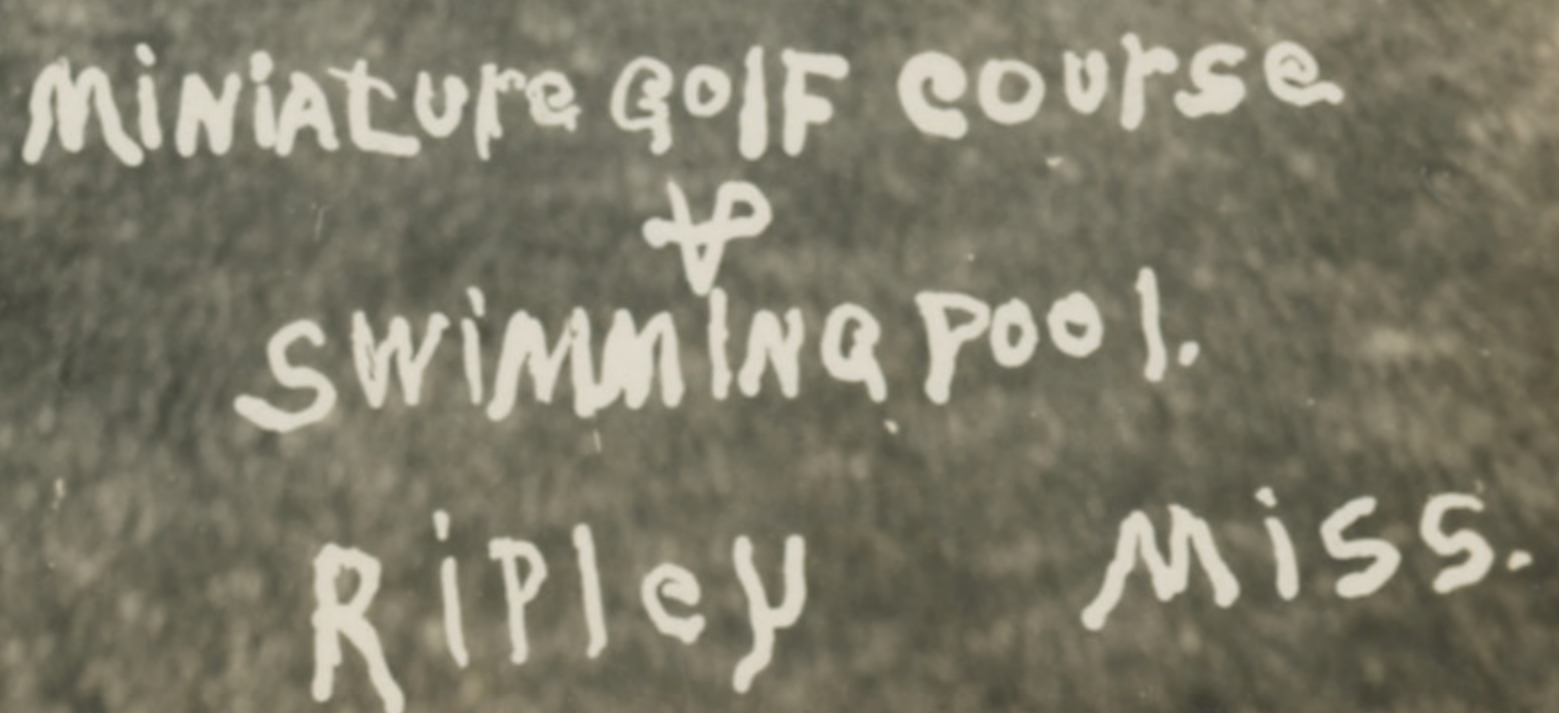 MiNiAture GolF course
&
SwimmINg pool.
RiPley Miss.